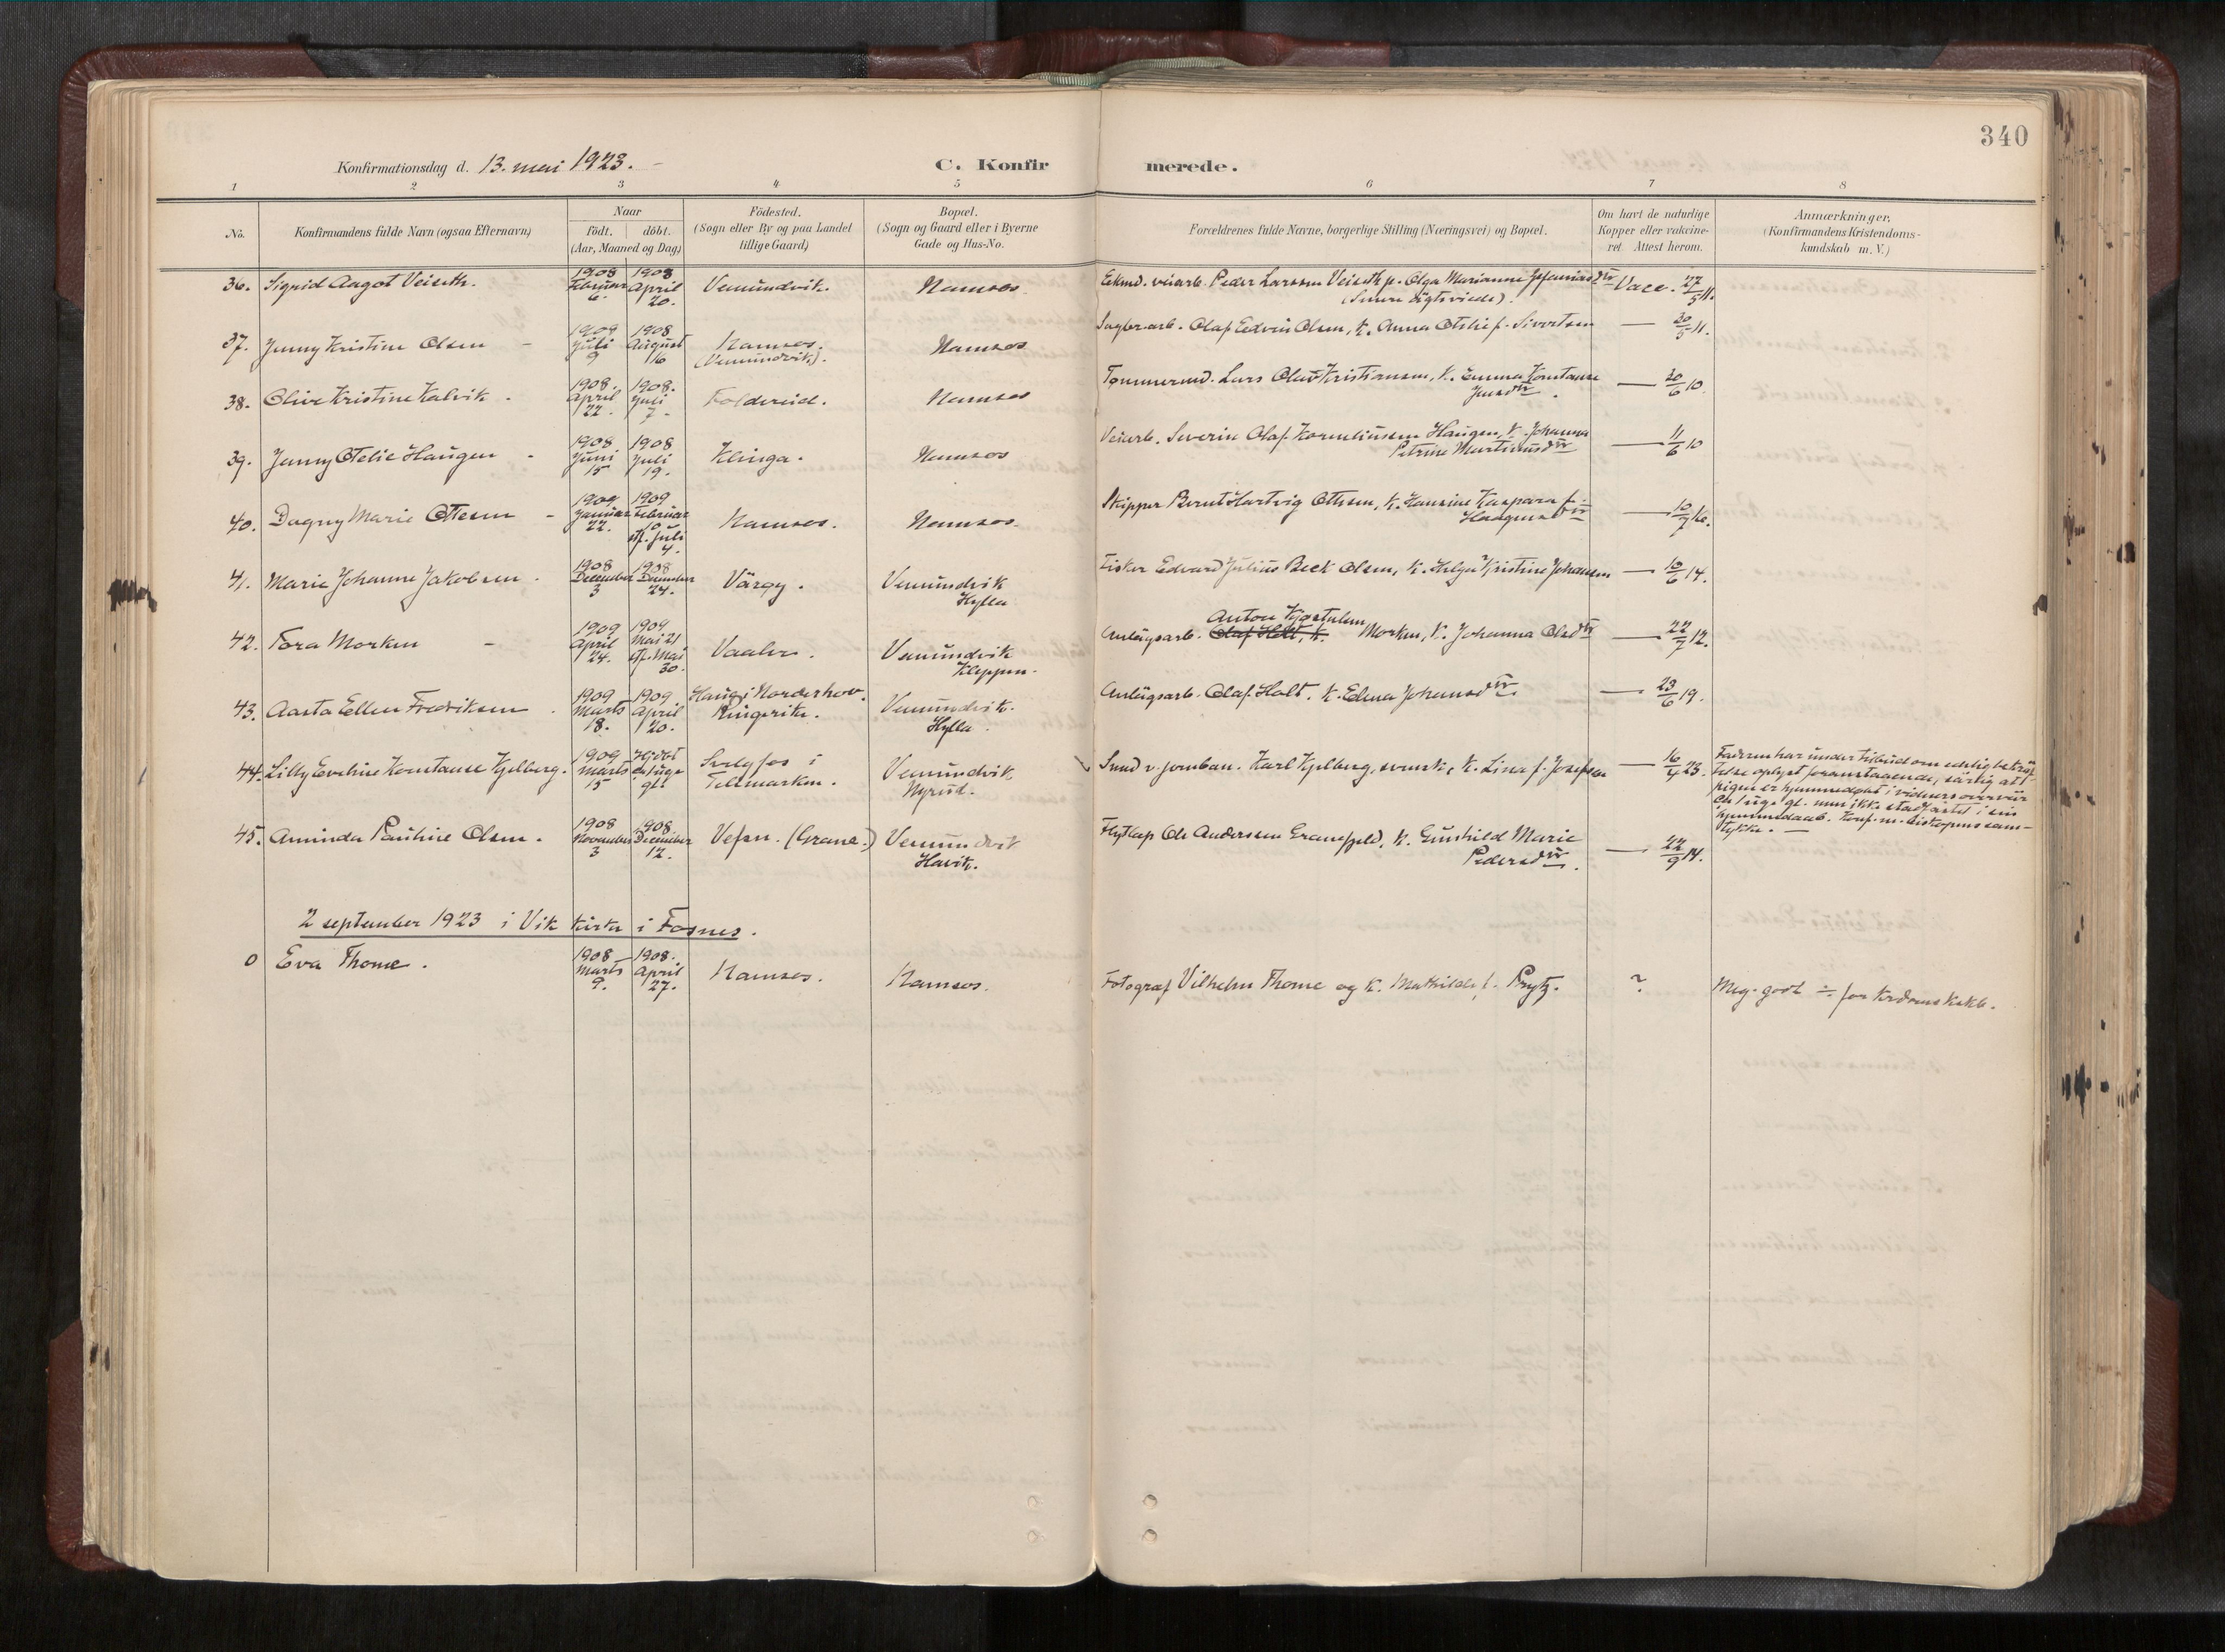 340
Konfirmationsdag d. 13. mai 1923. -
C. Konfirmerede.
1 2 3 4 5 6 7 8
No.
Konfirmandens fulde Navn (ogsaa Efternavn)
Naar
Födt. döbt.
(Aar, Maaned og Dag)
Födested.
(Sogn eller By og paa Landet
tillige Gaard)
Bopæl.
(Sogn og Gaard eller i Byerne
Gade og Hus-No.
Forældrenes fulde Navne, borgerlige Stilling (Næringsvei) og Bopæl.
Om havt de naturlige
Kopper eller vakcine-
ret. Attest herom.
Anmærkninger.
(Konfirmandens Kristendoms-
kundskab m. V.)
36. Sigrid Aagot Veiseth. 1908 Februar 6. 1908 April 20. Vemundvik. Namsos. Peder Larssen Veiseth Olga Marianne Vacc. 27/5 11.
37. Jenny Kristine Olsen - 1909 Juli 9 1908 August 16 Namsos. (Vemundvik). Namsos Olaf Edvin Olsen, K. Anna Otilie f. Sivertsen — 30/5 11.
38. Olive Kristine Kalvik. 1908. April 22. 1908. Juli 7. Foldereid. Namsos Tømmermd. Lars Olav Kristiansen, K. Emma Konstanse Jensdtr. — 20/6 10.
39. Jenny Otelie Haugen - 1908 Juni 15 1908 Juli 19. Klinga. Namsos Veiarb. Severin Olaf Korneliussen Haugen, K. Johanna Petrine Martinusdtr — 11/6 10
40. Dagny Marie Ottesen - 1909 Januar 22. 1909 Februar 10 stf. Juli 4. Namsos. Namsos. Skipper Bernt Hartvig Ottesen, K. Hansine Kaspara f. — 10/7
41. Marie Johanne Jakobsen. 1908 December 3 1908 December 24. Värøy. Vemundvik Hylla Fisker Edvard Julius Beck Olsen, K. Helga Kristine Johansen — 10/6 14.
42. Tora Morken - 1909 April 24. 1909 Mai 21 stf. Mai 30. Vaaler. Vemundvik Kleppen. Anlægsarb. Olaf Holt, K. Anton Morken, K. Johanna Olsdtr — 22/7 12.
43. Aasta Ellen Fredriksen. 1909 Marts 18. 1909 April 20. Haug i Norderhov. Ringerike. Vemundvik. Hylla. Anlægsarb. Olaf Holt. K. Edna Johansdtr. — 23/6 19.
44. Lilly Eveline Konstanse Kjelberg. 1909 Marts 15 Hjdbt en uge gl. Svelgfos i Telemarken. Vemundvik Nyrud. Smed v. jernban. Karl Kjelberg, svensk, K. Lina f. Josefsen — 16/4 23. Faderen har under tilbud om edelig bekräf-
telse oplyst foranstaaende, särlig at
pigen er hjemmedøbt i vidners overvär
en uge gl. men ikke stadfästet i sin
hjemmedaab. Konf. m. biskopens sam-
tykke. —
45. Aminda Pauline Olsen. 1908 November 3 1908. December 12. Vefsn. (Grane.) Vemundvik Havik. Ole Anderssen Granefjeld, K. Gunhild Marie Pedersdtr. — 22/9 14.
2 september 1923 i Vik kirke i Fosnes.
0 Eva Thome. 1908 Marts 9. 1908. April 27. Namsos. Namsos. Fotograf Vilhelm Thome og K. Mathilde f. Prytz. ? Meg. godt